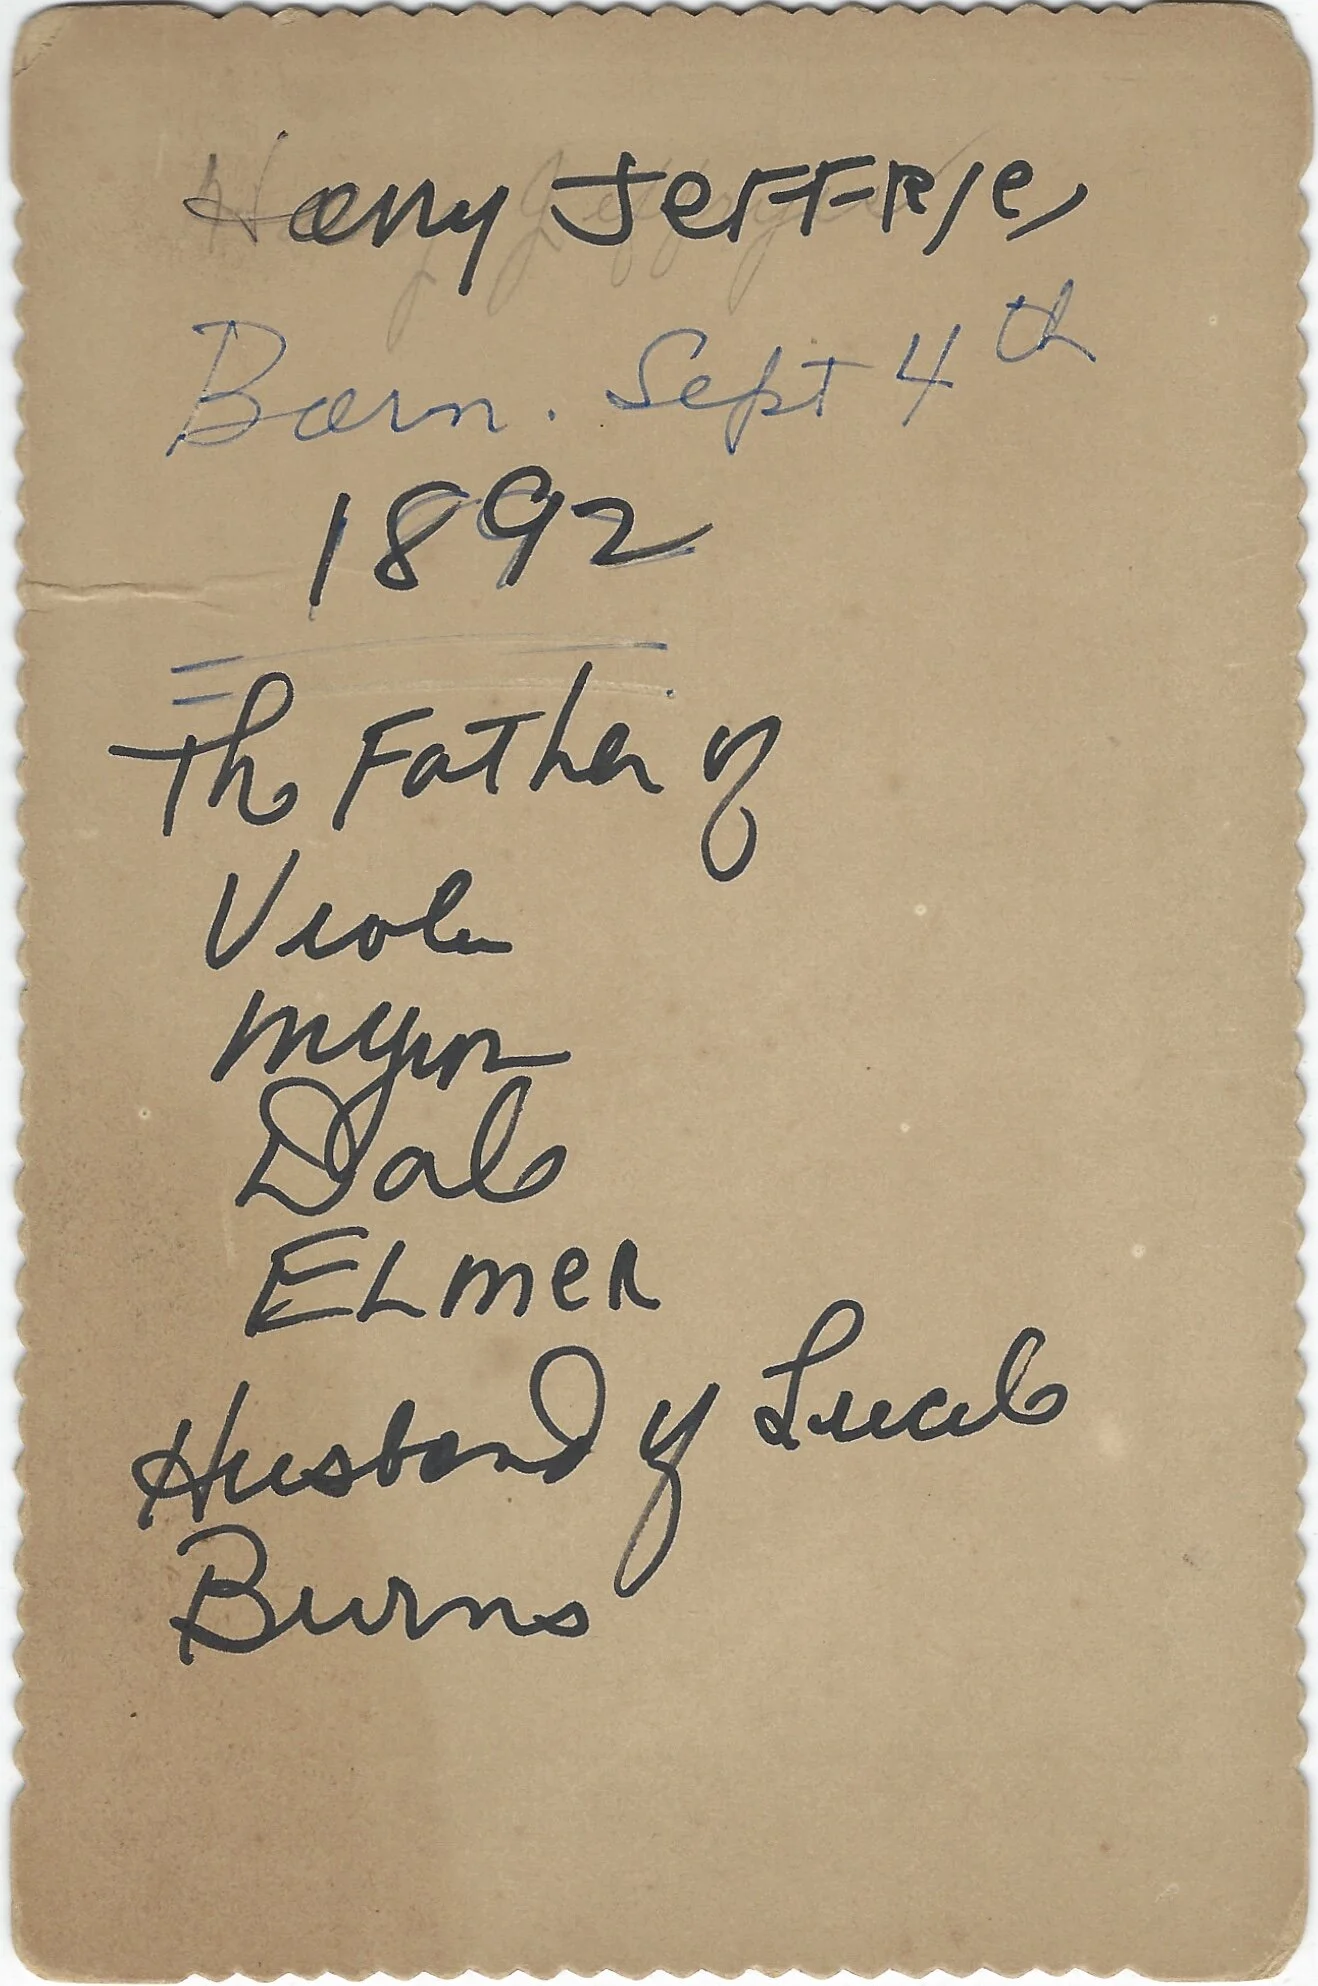 Harry Jeffries
Born. Sept 4th
1892
The Father of
Viola
Myron
Dale
ELmeR
Husband of Lucile
Burns